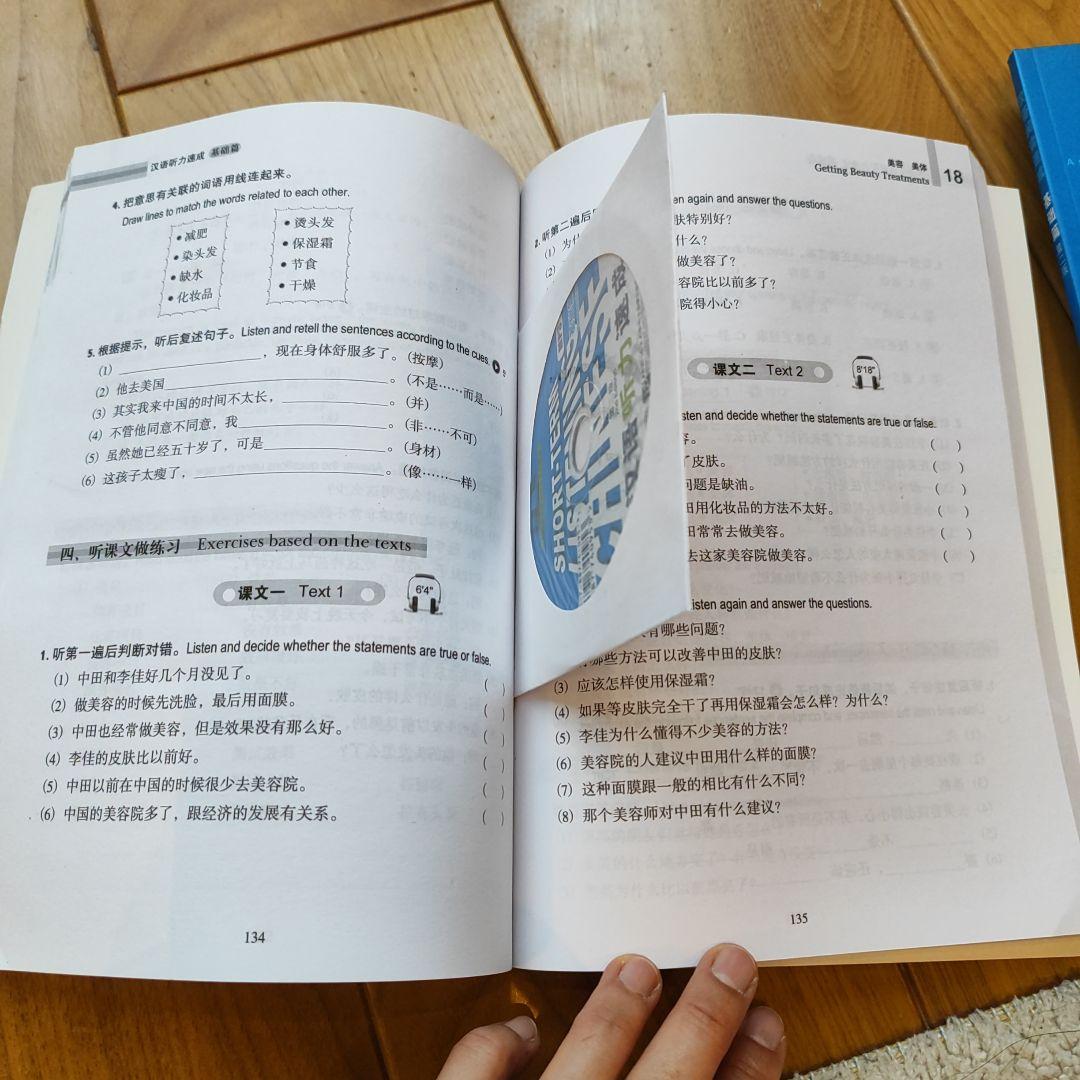 汉语听力速成 基础篇
4. 把意思有关联的词语用线连起来。
Draw lines to match the words related to each other.
• 减肥
• 染头发
• 缺水
• 化妆品
• 烫头发
• 保湿霜
• 节食
• 干燥
5. 根据提示，听后复述句子。Listen and retell the sentences according to the cues.
(1) ，现在身体舒服多了。（按摩）
(2) 他去美国 。（不是……而是……）
(3) 其实我来中国的时间不太长， 。（并）
(4) 不管他同意不同意，我 。（非……不可）
(5) 虽然她已经五十岁了，可是 。（身材）
(6) 这孩子太瘦了， 。（像……一样）
四、听课文做练习 Exercises based on the texts
课文一 Text 1
6'4"
1. 听第一遍后判断对错。Listen and decide whether the statements are true or false.
(1) 中田和李佳好几个月没见了。 ( )
(2) 做美容的时候先洗脸，最后用面膜。 ( )
(3) 中田也经常做美容，但是效果没有那么好。 ( )
(4) 李佳的皮肤比以前好。 ( )
(5) 中田以前在中国的时候很少去美容院。 ( )
(6) 中国的美容院多了，跟经济的发展有关系。 ( )
134
美容 美体
Getting Beauty Treatments 18
2. 听第二遍后 en again and answer the questions.
(1) 为什 肤特别好？
(2) 什么？
做美容了？
容院比以前多了？
院得小心？
SHORT-TERM
LISTENING
CHINESE
听力
课文二 Text 2
8'18"
isten and decide whether the statements are true or false.
容。 ( )
了皮肤。 ( )
问题是缺油。 ( )
田用化妆品的方法不太好。 ( )
田常常去做美容。 ( )
去这家美容院做美容。 ( )
isten again and answer the questions.
有哪些问题？
哪些方法可以改善中田的皮肤？
(3) 应该怎样使用保湿霜？
(4) 如果等皮肤完全干了再用保湿霜会怎么样？为什么？
(5) 李佳为什么懂得不少美容的方法？
(6) 美容院的人建议中田用什么样的面膜？
(7) 这种面膜跟一般的相比有什么不同？
(8) 那个美容师对中田有什么建议？
135